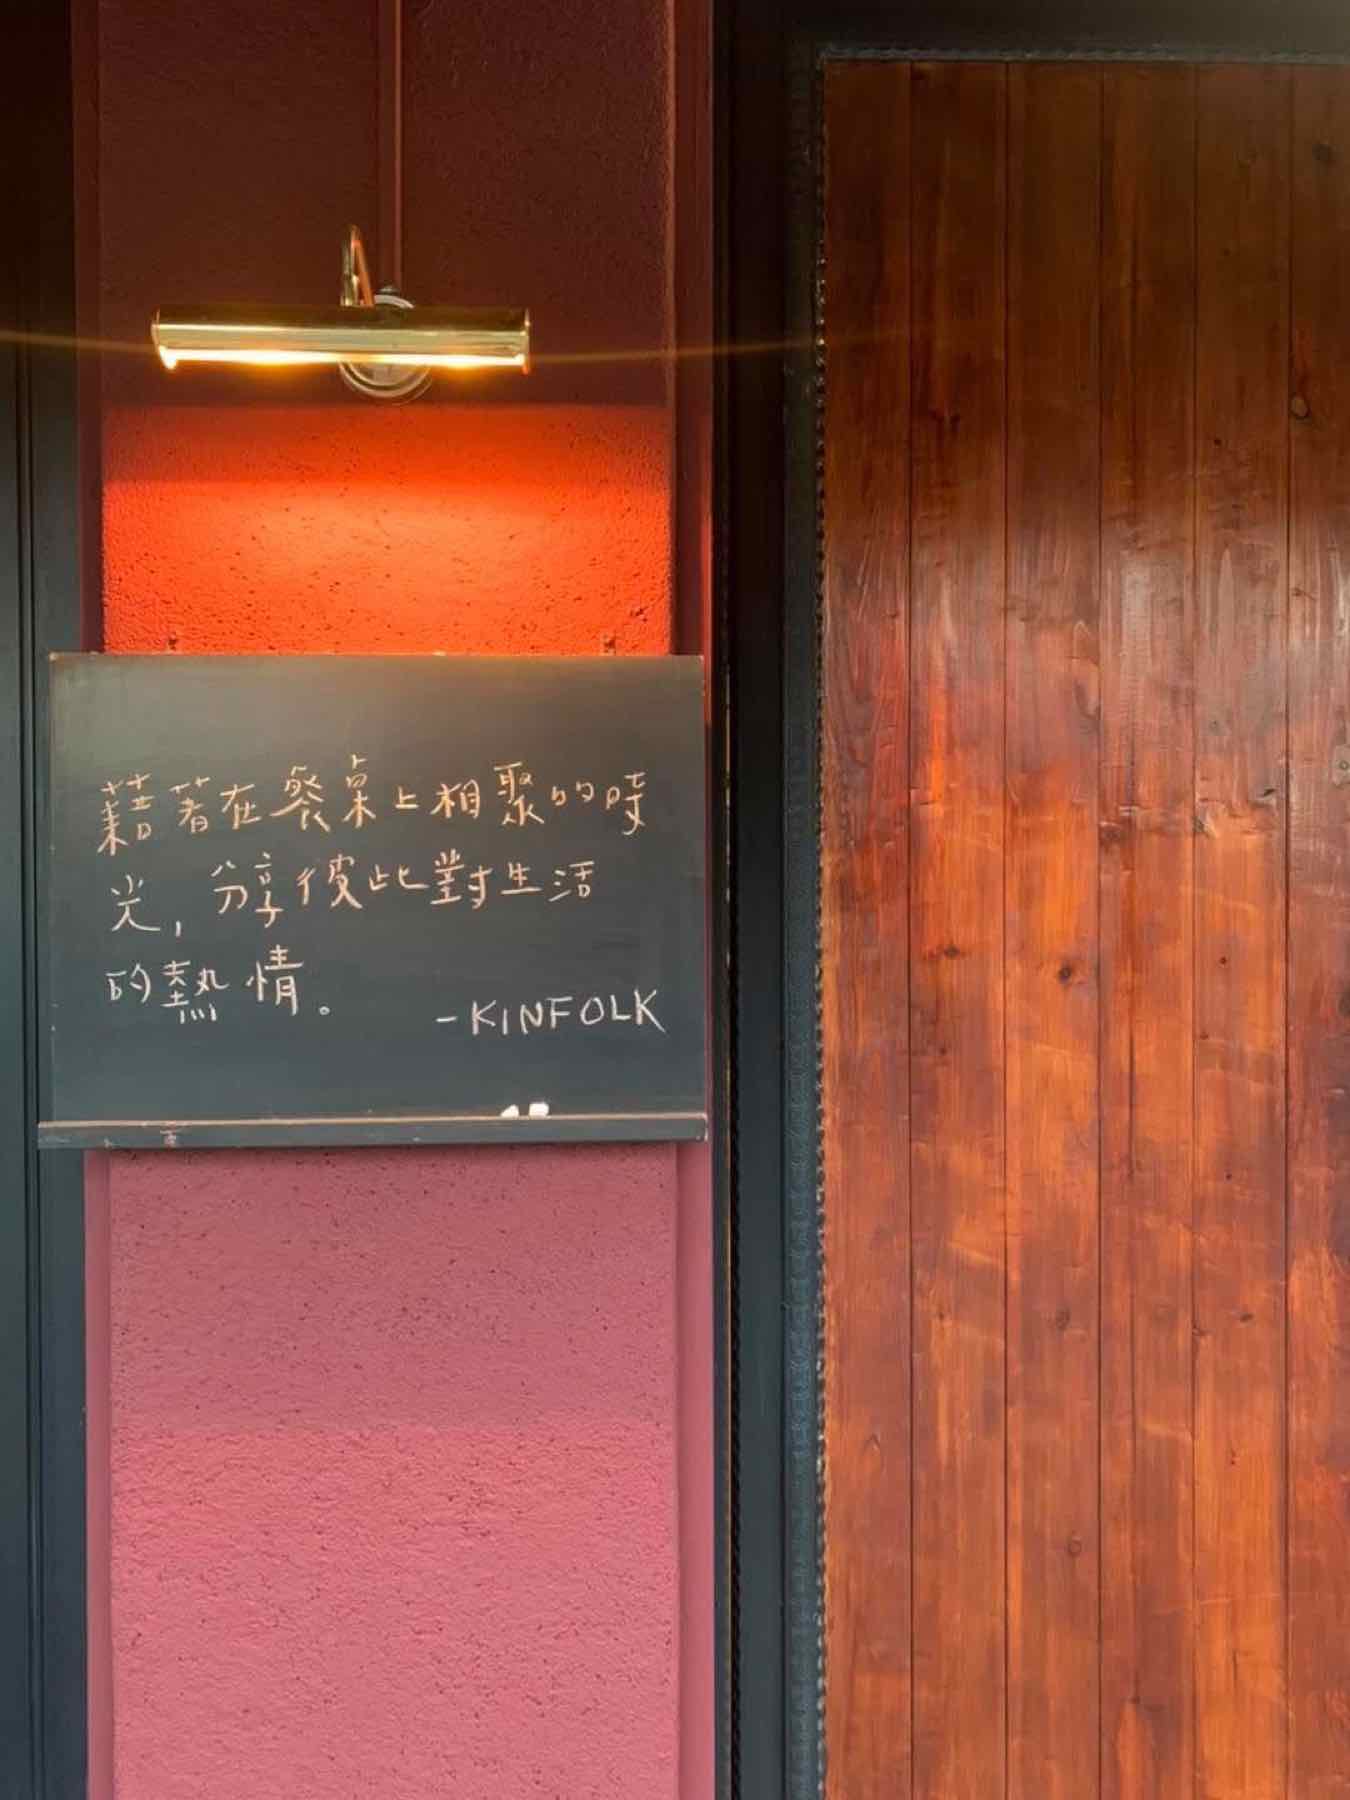 藉著在餐桌上相聚的時
光，分享彼此對生活
的熱情。
-KINFOLK